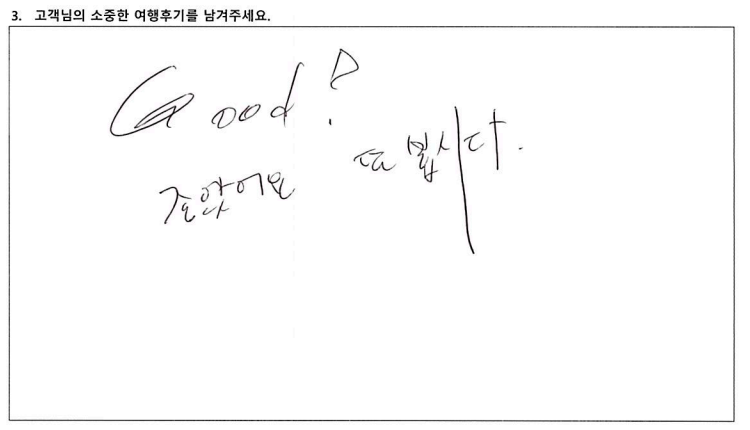 3. 고객님의 소중한 여행후기를 남겨주세요.
Good!
좋았어요 또 봅시다.